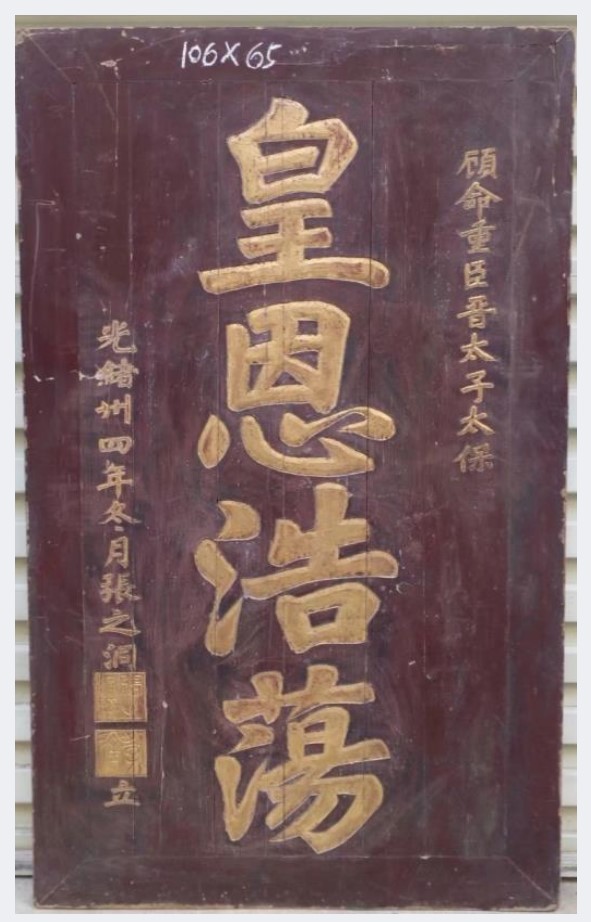 106X65
顧命重臣晋太子太保
皇恩浩蕩
光緒卅四年冬月張之洞
立